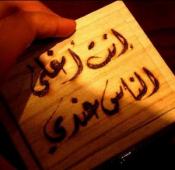 انت أغلى
الناس عندي